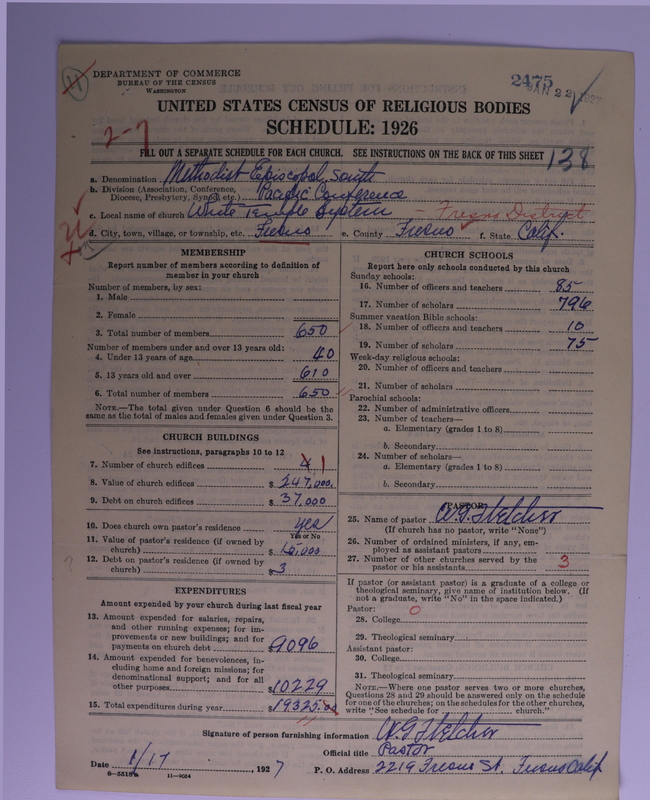 11
DEPARTMENT OF COMMERCE
BUREAU OF THE CENSUS
WASHINGTON
2475
JAN 22 1927
UNITED STATES CENSUS OF RELIGIOUS BODIES
SCHEDULE: 1926
2-7
FILL OUT A SEPARATE SCHEDULE FOR EACH CHURCH. SEE INSTRUCTIONS ON THE BACK OF THIS SHEET
138
a. Denomination Methodist Episcopal, South
b. Division (Association, Conference, Diocese, Presbytery, Synod, etc.) Pacific Conference
c. Local name of church White Temple System Fresno District
d. City, town, village, or township, etc. Fresno e. County Fresno f. State Calif.
MEMBERSHIP
Report number of members according to definition of
member in your church
Number of members, by sex:
1. Male
2. Female
3. Total number of members 650
Number of members under and over 13 years old:
4. Under 13 years of age 40
5. 13 years old and over 610
6. Total number of members 650
NOTE.—The total given under Question 6 should be the
same as the total of males and females given under Question 3.
CHURCH BUILDINGS
See instructions, paragraphs 10 to 12
7. Number of church edifices 4 1
8. Value of church edifices $ 247,000.
9. Debt on church edifices $ 37,000
10. Does church own pastor's residence yes
Yes or No
11. Value of pastor's residence (if owned by
church) $ 15,000
12. Debt on pastor's residence (if owned by
church) $ 3
EXPENDITURES
Amount expended by your church during last fiscal year
13. Amount expended for salaries, repairs,
and other running expenses; for im-
provements or new buildings; and for
payments on church debt $ 9096
14. Amount expended for benevolences, in-
cluding home and foreign missions; for
denominational support; and for all
other purposes $ 10229
15. Total expenditures during year $ 19325.00
CHURCH SCHOOLS
Report here only schools conducted by this church
Sunday schools:
16. Number of officers and teachers 85
17. Number of scholars 796
Summer vacation Bible schools:
18. Number of officers and teachers 10
19. Number of scholars 75
Week-day religious schools:
20. Number of officers and teachers
21. Number of scholars
Parochial schools:
22. Number of administrative officers
23. Number of teachers—
a. Elementary (grades 1 to 8)
b. Secondary
24. Number of scholars—
a. Elementary (grades 1 to 8)
b. Secondary
PASTOR
25. Name of pastor W.G. Fletcher
(If church has no pastor, write "None")
26. Number of ordained ministers, if any, em-
ployed as assistant pastors
27. Number of other churches served by the
pastor or his assistants 3
If pastor (or assistant pastor) is a graduate of a college or
theological seminary, give name of institution below. (If
not a graduate, write "No" in the space indicated.)
Pastor: 0
28. College
29. Theological seminary
Assistant pastor:
30. College
31. Theological seminary
NOTE.—Where one pastor serves two or more churches,
Questions 28 and 29 should be answered only on the schedule
for one of the churches; on the schedules for the other churches,
write "See schedule for church."
Signature of person furnishing information W.G. Fletcher
Official title Pastor
Date 1/17, 1927 P. O. Address 2219 Fresno St. Fresno Calif
6—5518a 11—9034